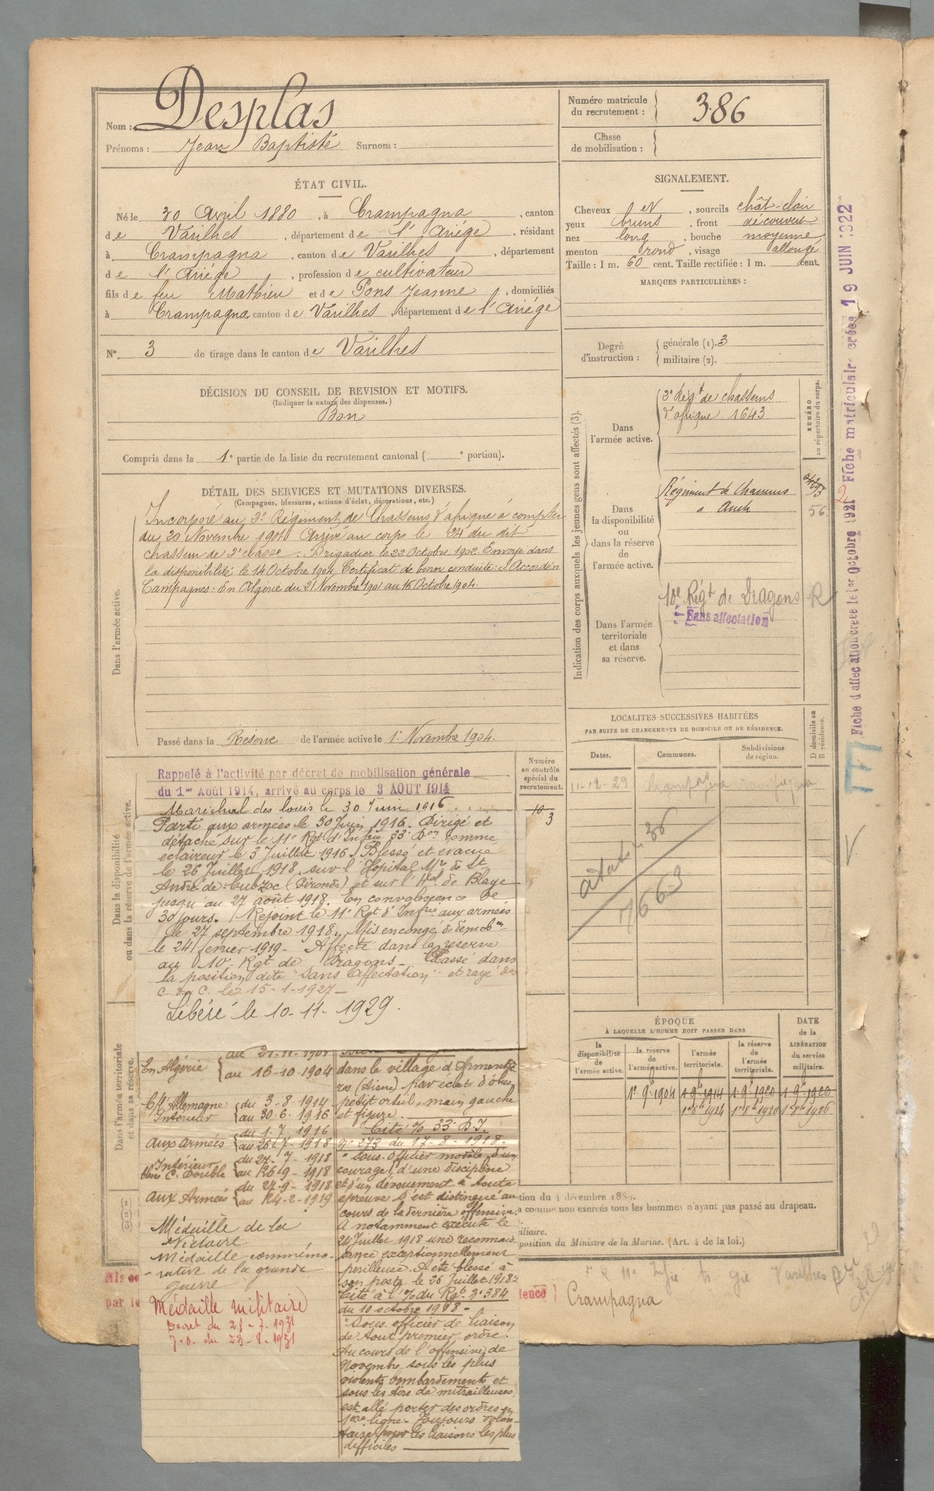 Nom : Desplas
Prénoms : Jean Baptiste Surnom :
Numéro matricule du recrutement : 386
Classe de mobilisation :
ÉTAT CIVIL.
Né le 20 Avril 1880, à Crampagna, canton
de Varilhes, département de l'Ariège, résidant
à Crampagna, canton de Varilhes, département
de l'Ariège, profession de cultivateur
fils de feu Mathieu et de Pons Jeanne, domiciliés
à Crampagna canton de Varilhes, département de l'Ariège
N° 3 de tirage dans le canton de Varilhes
SIGNALEMENT.
Cheveux et sourcils chât-clair
yeux bruns, front découvert
nez long, bouche moyenne
menton rond, visage allongé
Taille : 1 m. 60 cent. Taille rectifiée : 1 m. cent.
MARQUES PARTICULIÈRES :
Degré d'instruction : générale (1). 3
militaire (2).
DÉCISION DU CONSEIL DE REVISION ET MOTIFS.
(Indiquer la nature des dispenses.)
Bon
Compris dans la 1e partie de la liste du recrutement cantonal ( e portion).
DÉTAIL DES SERVICES ET MUTATIONS DIVERSES.
(Campagnes, blessures, actions d'éclat, décorations, etc.)
Dans l'armée active.
Incorporé au 3e Régiment de Chasseurs d'afrique à compter
du 20 Novembre 1901 Arrivé au corps le 24 du dit
chasseur de 2e classe. Brigadier le 22 Octobre 1902 Envoyé dans
la disponibilité le 14 Octobre 1904. Certificat de bonne conduite : Accordé
Campagnes : En Algérie du 21 Novembre 1901 au 16 Octobre 1904.
Passé dans la Réserve de l'armée active le 1er Novembre 1904.
Indication des corps auxquels les jeunes gens sont affectés (3).
Dans l'armée active.
3e Régt de chasseurs
d'afrique 1643
NUMÉRO au répertoire du corps.
Dans la disponibilité ou dans la réserve de l'armée active.
Régiment de Chasseurs
à Auch
56
Dans l'armée territoriale et dans sa réserve.
10e Régt de Dragons R
Sans affectation
Fiche d'affectation créée le 1er octobre 1921 Fiche matriculaire créée 19 JUIN 1922
LOCALITÉS SUCCESSIVES HABITÉES
PAR SUITE DE CHANGEMENTS DE DOMICILE OU DE RÉSIDENCE.
Dates. Communes. Subdivisions de région. D domicile ou R résidence.
Crampagna
7663
Numéro au contrôle spécial du recrutement.
10
3
Dans la disponibilité ou dans la réserve de l'armée active.
Rappelé à l'activité par décret de mobilisation générale
du 1er Août 1914, arrivé au corps le 3 AOUT 1914
Maréchal des logis le 30 Juin 1916
Parti aux armées le 30 Juin 1916. Dirigé et
détaché sur le 11e Rgt d'Infie 33e Don comme
éclaireur le 3 Juillet 1916. Blessé et évacué
le 26 Juillet 1918 sur l'Hôpital Mre de St
André de Cubzac (Gironde) et sur l'Hal de Blaye
jusqu'au 27 août 1918. En convalescence de
30 jours. Rejoint le 11e Rgt d'Infie aux armées
le 27 septembre 1918. Mis en congé de démobon
le 24 février 1919. Affecté dans la réserve
au 10e Rgt de Dragons. Classé dans
la position dite "Sans Affectation" et rayé des
C. du C. le 15-1-1927
Libéré le 10-11-1929.
Dans l'armée territoriale et dans sa réserve.
ÉPOQUE
À LAQUELLE L'HOMME DOIT PASSER DANS
DATE de la LIBÉRATION du service militaire.
la disponibilité de l'armée active.
la réserve de l'armée active.
l'armée territoriale.
la réserve de l'armée territoriale.
1er 9bre 1904
En Algérie du 21-11-1901
au 16-10-1904
C/ Allemagne
Intérieur du 3-8-1914
au 30-6-1916
aux armées du 1-7-1916
au 26-7-1918
Intérieur du 27-7-1918
au 26-9-1918
aux Armées du 27-9-1918
au 24-2-1919
Médaille de la
Victoire
Médaille commémo-
rative de la grande
Guerre
Médaille militaire
Décret du
dans le village d'Armentiè-
res (Aisne) par éclats d'obus
petit orteil, main gauche
et figure.
Cité % 33e D.I.
n° 273 du 17-8-1918.
"Sous-Officier modèle d'un
courage, d'une discipline
et d'un dévouement à toute
épreuve s'est distingué au
cours de la dernière offensive.
A notamment exécuté le
21 Juillet 1918 une reconnais-
sance exceptionnellement
périlleuse. A été blessé à
son poste le 26 Juillet 1918"
Cité à l'O. du Rgt n° 384
du 10 octobre 1918 -
"Sous-officier de liaison
de tout premier ordre.
Au cours de l'offensive de
Novembre, sous les plus
violents bombardements et
sous les tirs de mitrailleuses
est allé porter des ordres en
1ère ligne. Toujours volon-
taire pour les liaisons les plus
difficiles
tion du 4 décembre 1889.
a comme non exercés tous les hommes n'ayant pas passé au drapeau.
position du Ministre de la Marine. (Art. 4 de la loi.)
Crampagna